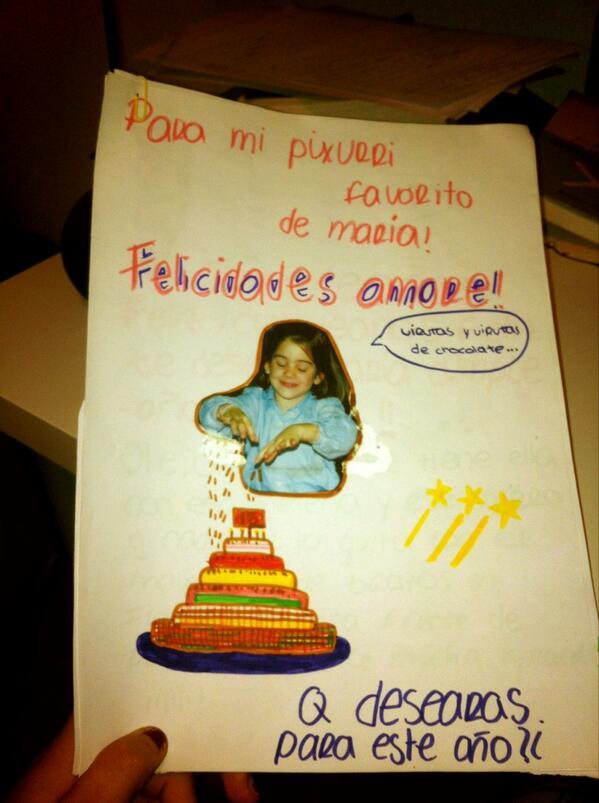 Para mi pixurri
favorito
de maria!
Felicidades amore!
virutas y virutas
de chocolate...
Q desearas.
para este año?¿